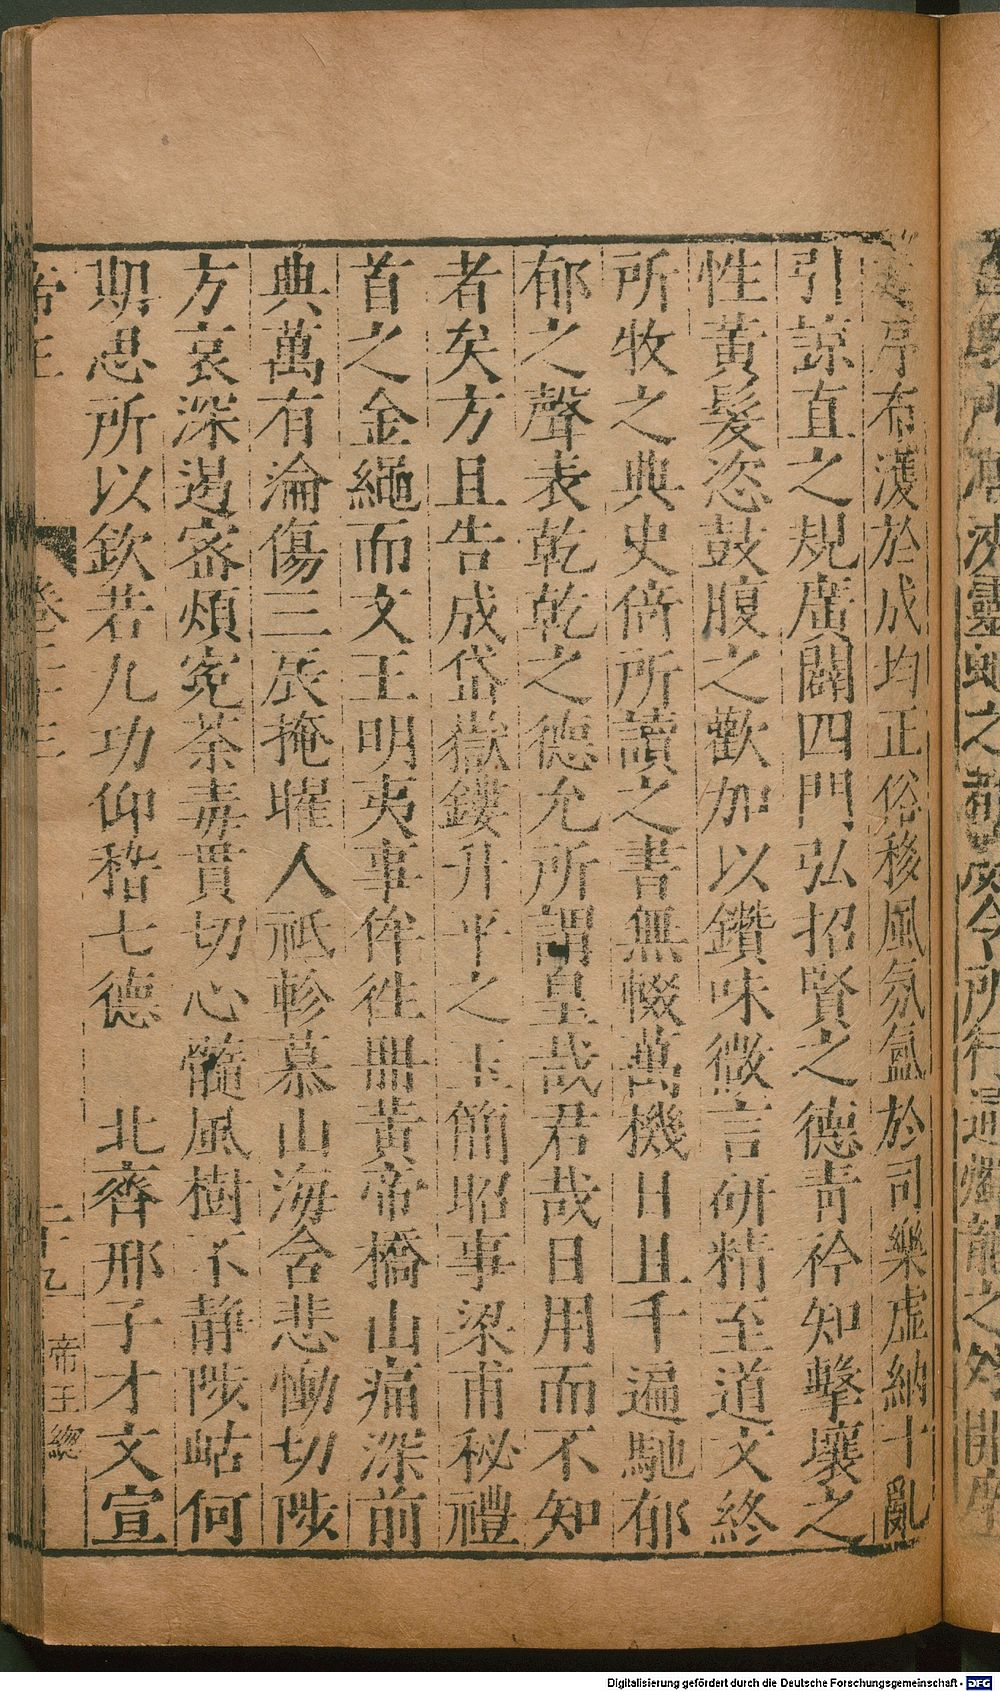 序布濩於成均正俗移風氛氳於司樂虛納十亂
引諒直之規廣闢四門弘招賢之德靑衿知擊壤之
性黃髮恣鼓腹之歡加以鑽味微言硏精至道文終
所牧之典史倚所讀之書無輟萬機日且千遍馳郁
郁之聲表乾乾之德允所謂皇哉君哉日用而不知
者矣方且告成岱嶽鏤升平之玉簡昭事梁甫秘禮
首之金繩而文王明夷事侔徃冊黃帝橋山痛深前
典萬有淪傷三辰掩曜人祇軫慕山海含悲慟切陟
方哀深遏宻煩寃荼毒貫切心髓風樹不静陟岵何
期思所以欽若九功仰稽七德 北齊邢子才文宣
帝王
卷十三
二十九
帝王總
靈虵之
令所行
龍之外
Digitalisierung gefördert durch die Deutsche Forschungsgemeinschaft - DFG